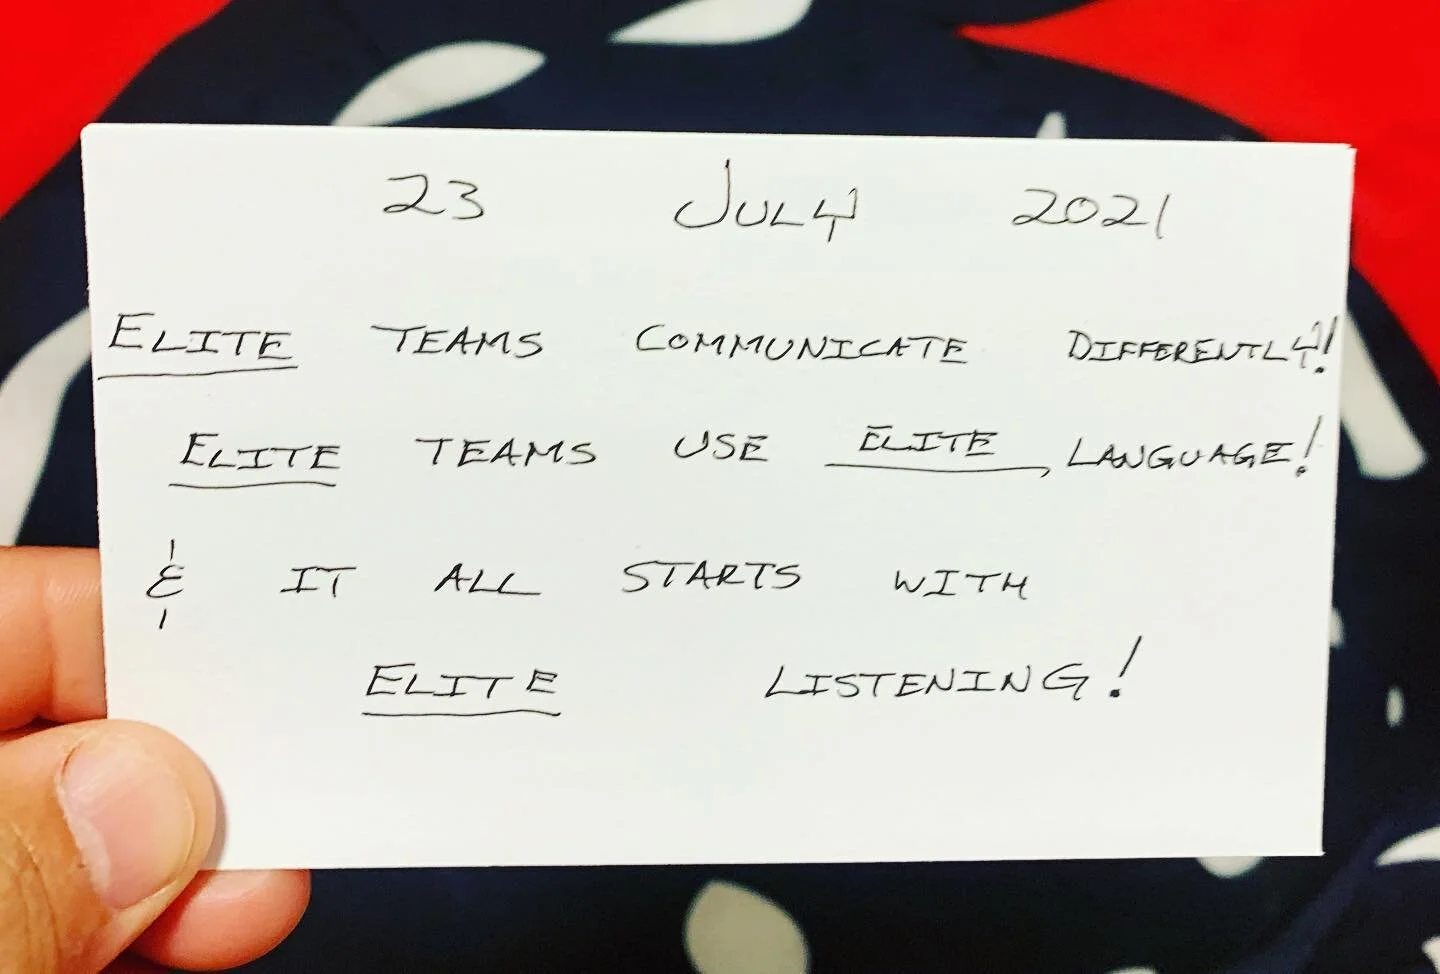 23 July 2021
ELITE TEAMS COMMUNICATE DIFFERENTLY!
ELITE TEAMS USE ELITE, LANGUAGE!
& IT ALL STARTS WITH
ELITE LISTENING!